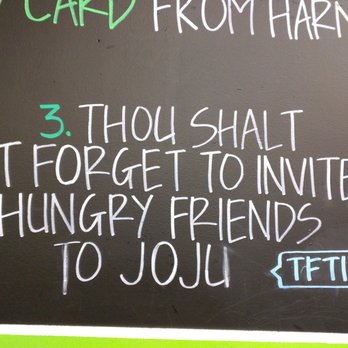 CARD FROM HARN
3. THOU SHALT
T FORGET TO INVITE
HUNGRY FRIENDS
TO JOJU {TFTI